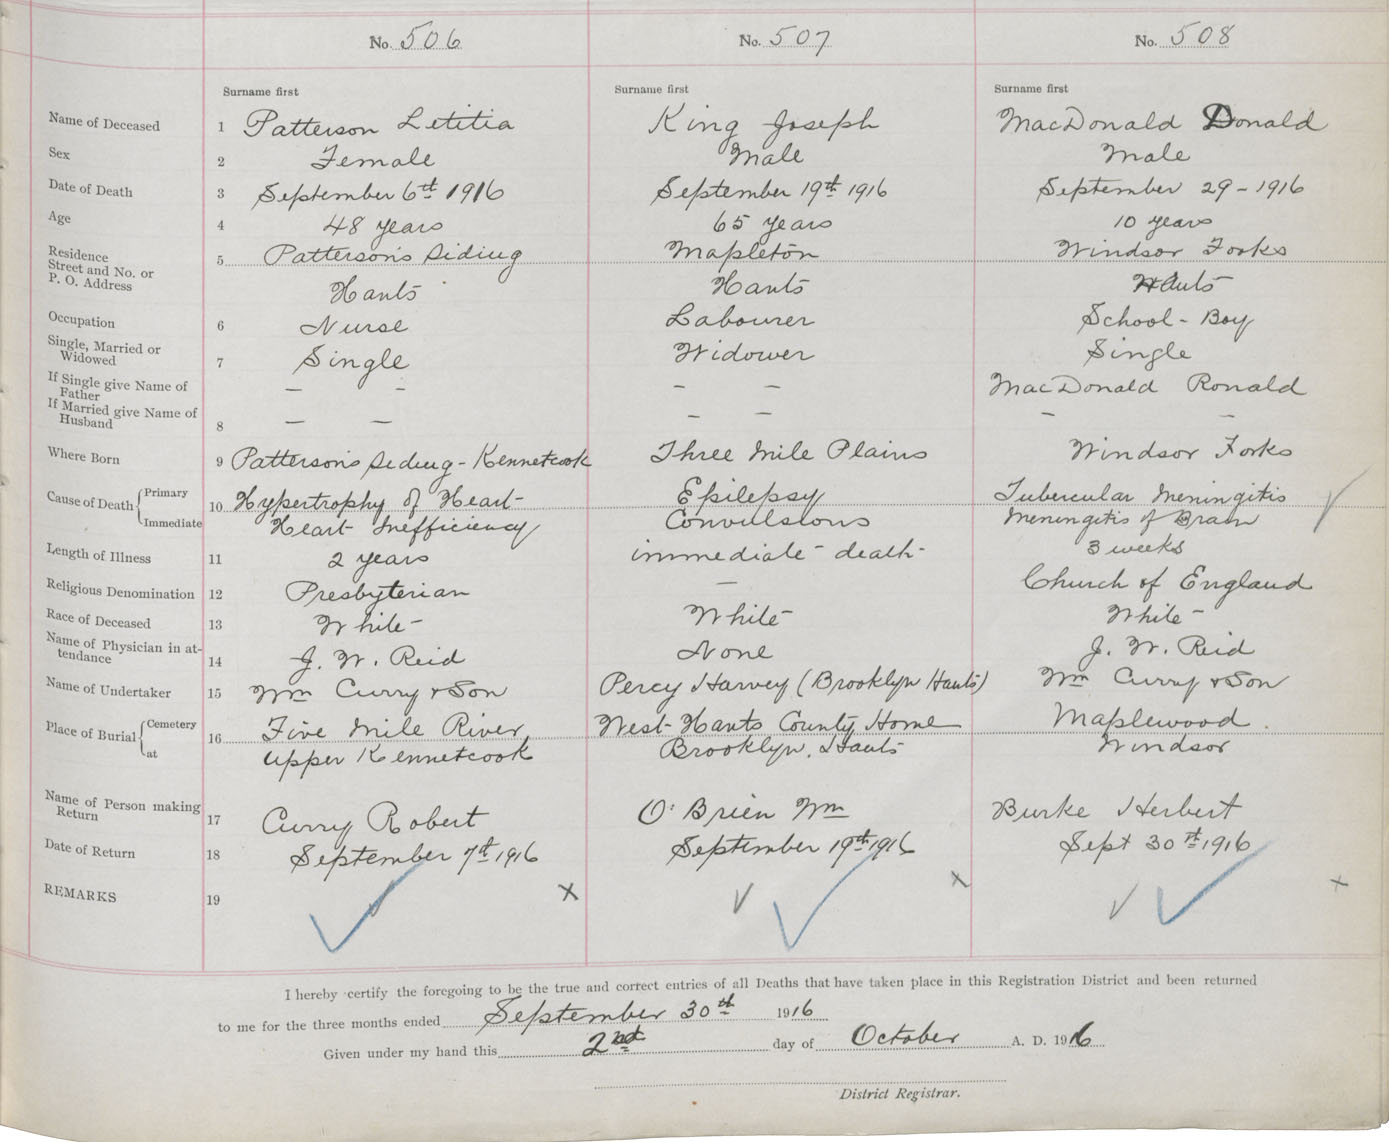 No. 506 No. 507 No. 508
Surname first Surname first Surname first
Name of Deceased 1 Patterson Letitia King Joseph MacDonald Donald
Sex 2 Female Male Male
Date of Death 3 September 6th 1916 September 19th 1916 September 29 - 1916
Age 4 48 years 65 years 10 years
Residence Patterson's Siding Mapleton Windsor Forks
Street and No. or 5
P. O. Address Hants Hants Hants
Occupation 6 Nurse Labourer School - Boy
Single, Married or
Widowed 7 Single Widower Single
If Single give Name of
Father — — — — MacDonald Ronald
If Married give Name of
Husband 8 — — — — — —
Where Born 9 Patterson's Siding - Kennetcook Three Mile Plains Windsor Forks
Cause of Death { Primary 10 Hypertrophy of Heart Epilepsy Tubercular Meningitis
Immediate Heart Inefficiency Convulsions Meningitis of Brain
Length of Illness 11 2 years immediate death 3 weeks
Religious Denomination 12 Presbyterian — Church of England
Race of Deceased 13 White White White
Name of Physician in at-
tendance 14 J. W. Reid None J. W. Reid
Name of Undertaker 15 Wm Curry & Son Percy Harvey (Brooklyn Hants) Wm Curry & Son
Place of Burial { Cemetery 16 Five Mile River West Hants County Home Maplewood
at Upper Kennetcook Brooklyn, Hants Windsor
Name of Person making
Return 17 Curry Robert O'Brien Wm Burke Herbert
Date of Return 18 September 7th 1916 September 19th 1916 Sept 30th 1916
REMARKS 19 x x x
I hereby certify the foregoing to be the true and correct entries of all Deaths that have taken place in this Registration District and been returned
to me for the three months ended September 30th 1916
Given under my hand this 2nd day of October A. D. 1916
District Registrar.